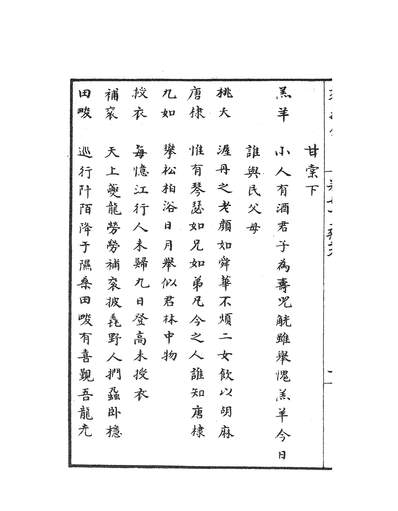 甘棠下
羔羊　小人有酒君子為壽兕觥雖舉愧羔羊今日
誰與民父母
桃夭　渥丹之老顏如舜華不煩二女飲以胡麻
唐棣　惟有琴瑟如兄如弟凡今之人誰知唐棣
九如　攀松柏浴日月舉似君林中物
授衣　每憶江行人未歸九日登高未授衣
補袞　天上夔龍勞勞補袞披毳野人捫蝨臥穩
田畯　巡行阡陌降于隰桑田畯有喜觀吾龍光